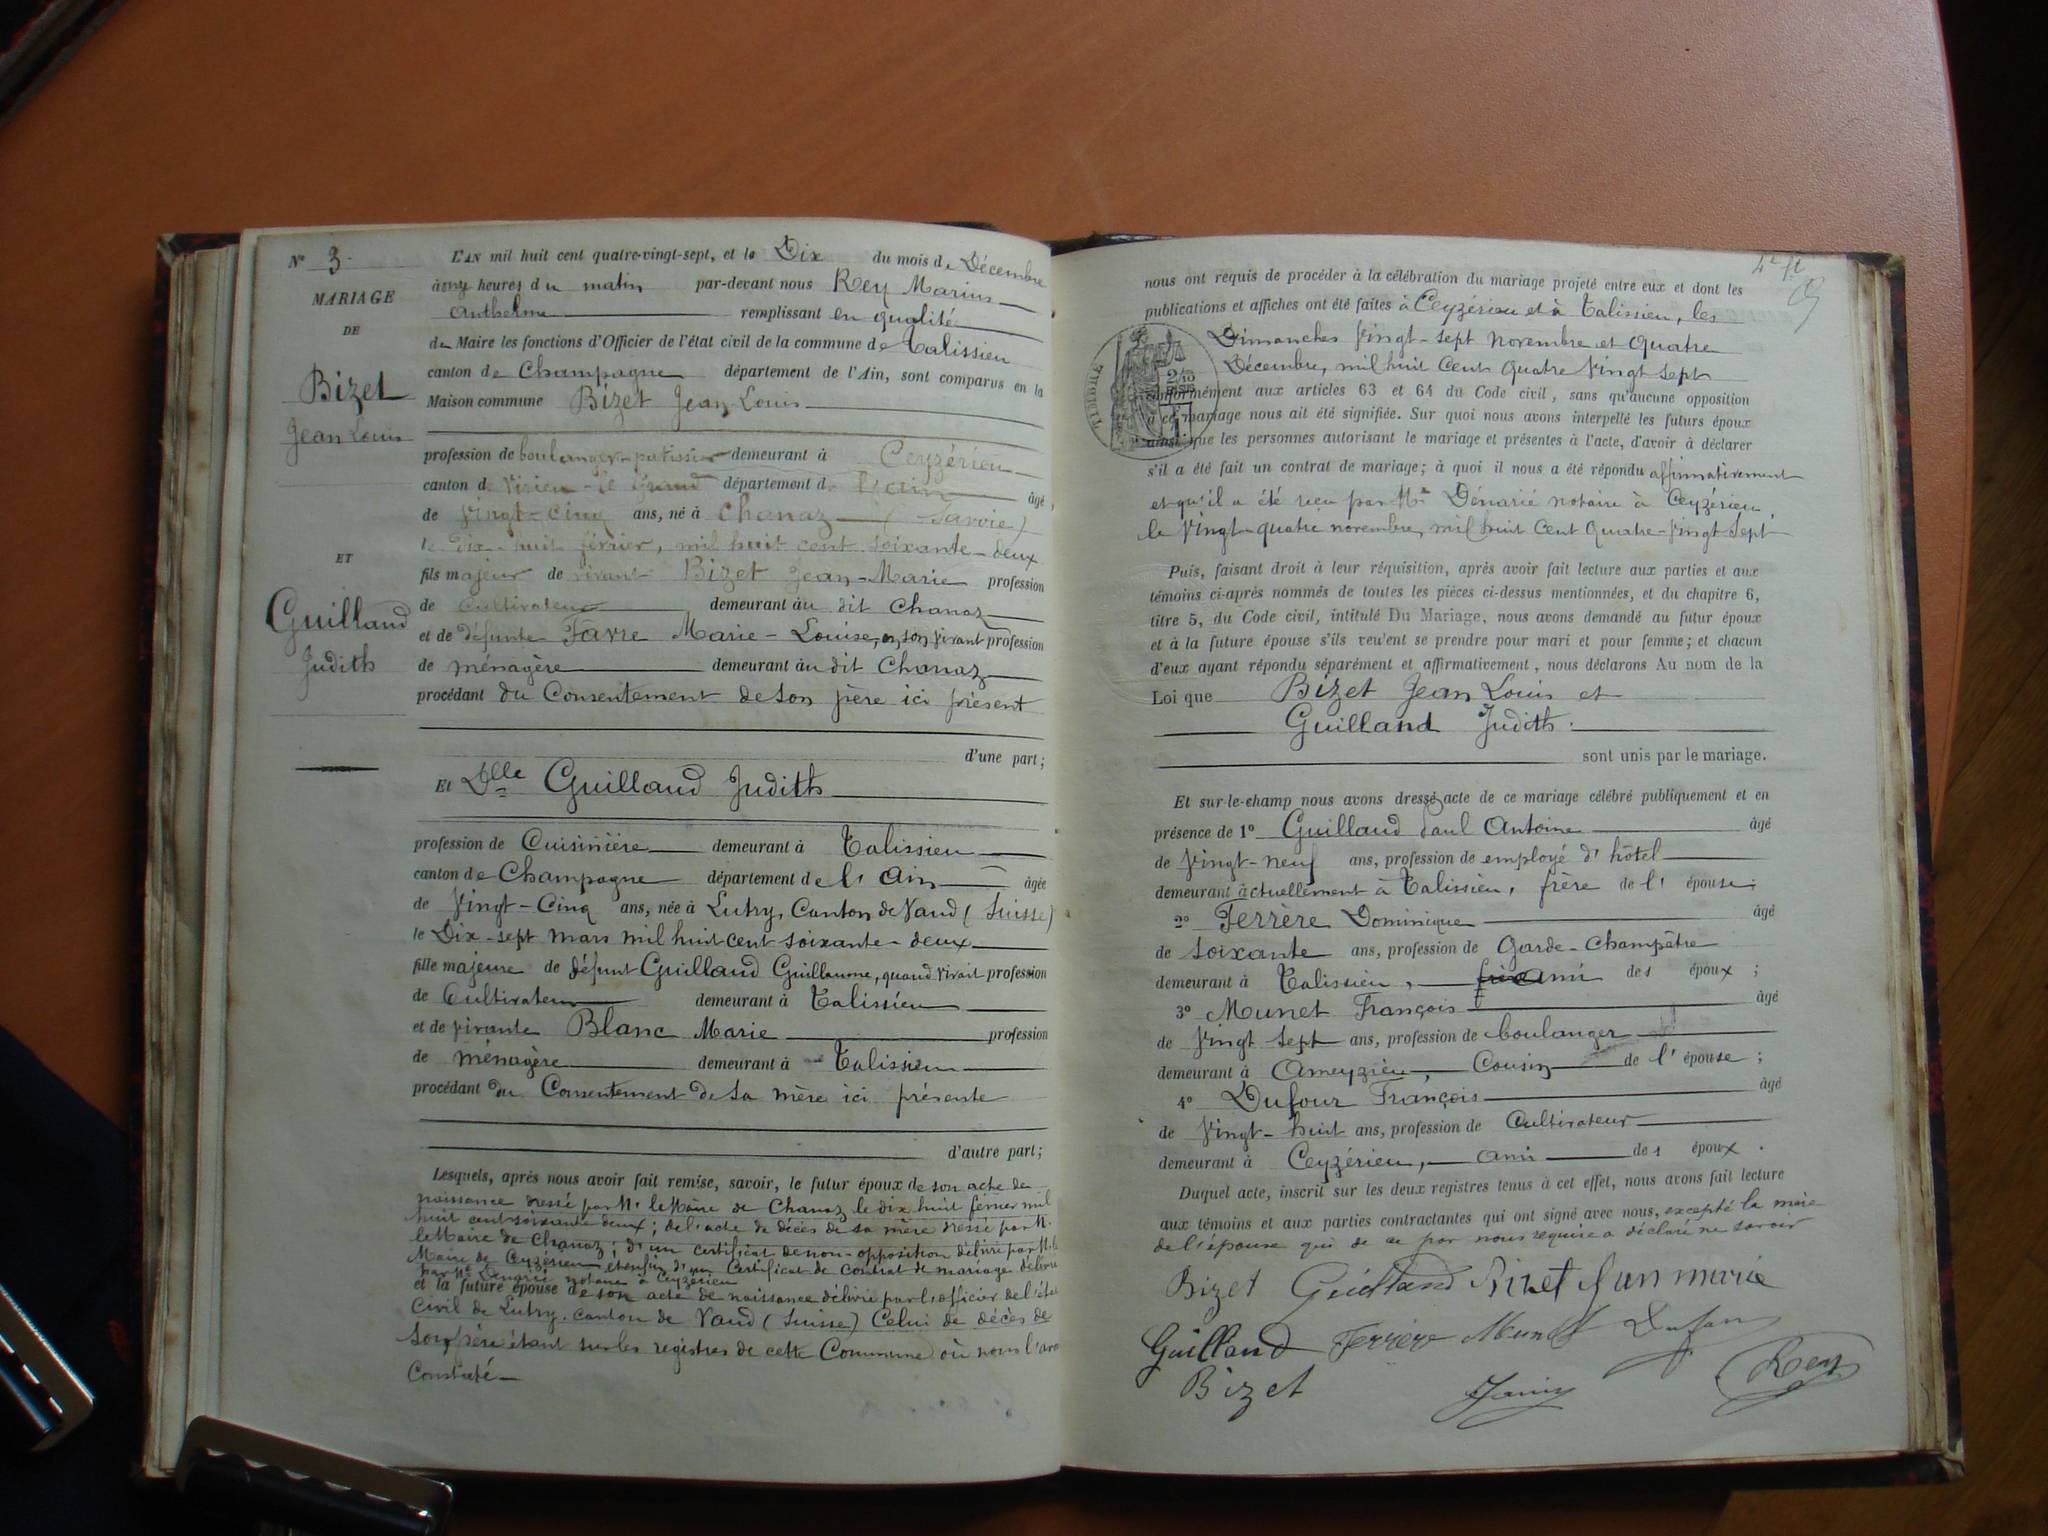 N° 3.
MARIAGE
DE
Bizet
Jean Louis
ET
Guilland
Judith
L'AN mil huit cent quatre-vingt-sept, et le Dix du mois de Décembre
à onze heures du matin par-devant nous Rey Marius
Anthelme remplissant en qualité
de Maire les fonctions d'Officier de l'état civil de la commune de Talissieu
canton de Champagne département de l'Ain, sont comparus en la
Maison commune Bizet Jean Louis
profession de boulanger-patissier demeurant à Ceyzérieu
canton de Virieu-le Grand département de l'ain âgé
de Vingt-Cinq ans, né à Chanaz (Savoie)
le dix-huit février, mil huit cent soixante-deux
fils majeur de vivant Bizet Jean-Marie profession
de Cultivateur demeurant au dit Chanaz
et de défunte Favre Marie-Louise, en son vivant profession
de ménagère demeurant au dit Chanaz
procédant du Consentement de son père ici présent
d'une part;
Et Dlle Guilland Judith
profession de Cuisinière demeurant à Talissieu
canton de Champagne département de l'Ain âgée
de Vingt-Cinq ans, née à Lutry, Canton de Vaud (Suisse)
le Dix-sept mars mil huit cent soixante-deux
fille majeure de défunt Guilland Guillaume, quand vivait profession
de Cultivateur demeurant à Talissieu
et de vivante Blanc Marie profession
de ménagère demeurant à Talissieu
procédant du Consentement de sa mère ici présente
d'autre part;
Lesquels, après nous avoir fait remise, savoir, le futur époux de son acte de
naissance dressé par Mr le Maire de Chanaz le dix huit février mil
huit cent soixante deux; de l'acte de décès de sa mère dressé par M.
le Maire de Chanaz; d'un certificat de non-opposition délivré par M. le
Maire de Ceyzérieu et enfin d'un Certificat de contrat de mariage délivré
par Me Dénarié notaire à Ceyzérieu
et la future épouse de son acte de naissance délivré par l'officier de l'état
Civil de Lutry, canton de Vaud (Suisse) Celui de décès de
son père étant sur les registres de cette Commune où nous l'avons
Constaté
nous ont requis de procéder à la célébration du mariage projeté entre eux et dont les
publications et affiches ont été faites à Ceyzérieu et à Talissieu, les
Dimanches Vingt-sept novembre et quatre
Décembre, mil huit Cent quatre Vingt sept
conformément aux articles 63 et 64 du Code civil, sans qu'aucune opposition
à ce mariage nous ait été signifiée. Sur quoi nous avons interpellé les futurs époux
ainsi que les personnes autorisant le mariage et présentes à l'acte, d'avoir à déclarer
s'il a été fait un contrat de mariage; à quoi il nous a été répondu affirmativement
et qu'il a été reçu par Me Dénarié notaire à Ceyzérieu,
le Vingt-quatre novembre, mil huit Cent Quatre-Vingt Sept
Puis, faisant droit à leur réquisition, après avoir fait lecture aux parties et aux
témoins ci-après nommés de toutes les pièces ci-dessus mentionnées, et du chapitre 6,
titre 5, du Code civil, intitulé Du Mariage, nous avons demandé au futur époux
et à la future épouse s'ils veulent se prendre pour mari et pour femme; et chacun
d'eux ayant répondu séparément et affirmativement, nous déclarons Au nom de la
Loi que Bizet Jean Louis et
Guilland Judith.
sont unis par le mariage.
Et sur-le-champ nous avons dressé acte de ce mariage célébré publiquement et en
présence de 1° Guilland Paul Antoine âgé
de Vingt-neuf ans, profession de employé d'hôtel
demeurant actuellement à Talissieu, frère de l'épouse;
2° Ferrère Dominique âgé
de soixante ans, profession de Garde-Champêtre
demeurant à Talissieu, ami de l époux;
3° Munet François âgé
de Vingt sept ans, profession de boulanger
demeurant à Ameyzieu, Cousin de l'épouse;
4° Dufour François âgé
de Vingt-huit ans, profession de Cultivateur
demeurant à Ceyzérieu, ami de l époux.
Duquel acte, inscrit sur les deux registres tenus à cet effet, nous avons fait lecture
aux témoins et aux parties contractantes qui ont signé avec nous, excepté la mère
de l'épouse qui de ce par nous requise a déclaré ne savoir
Bizet Guilland Bizet Jean marie
Guilland Ferrère Munet Dufour
Bizet Rey